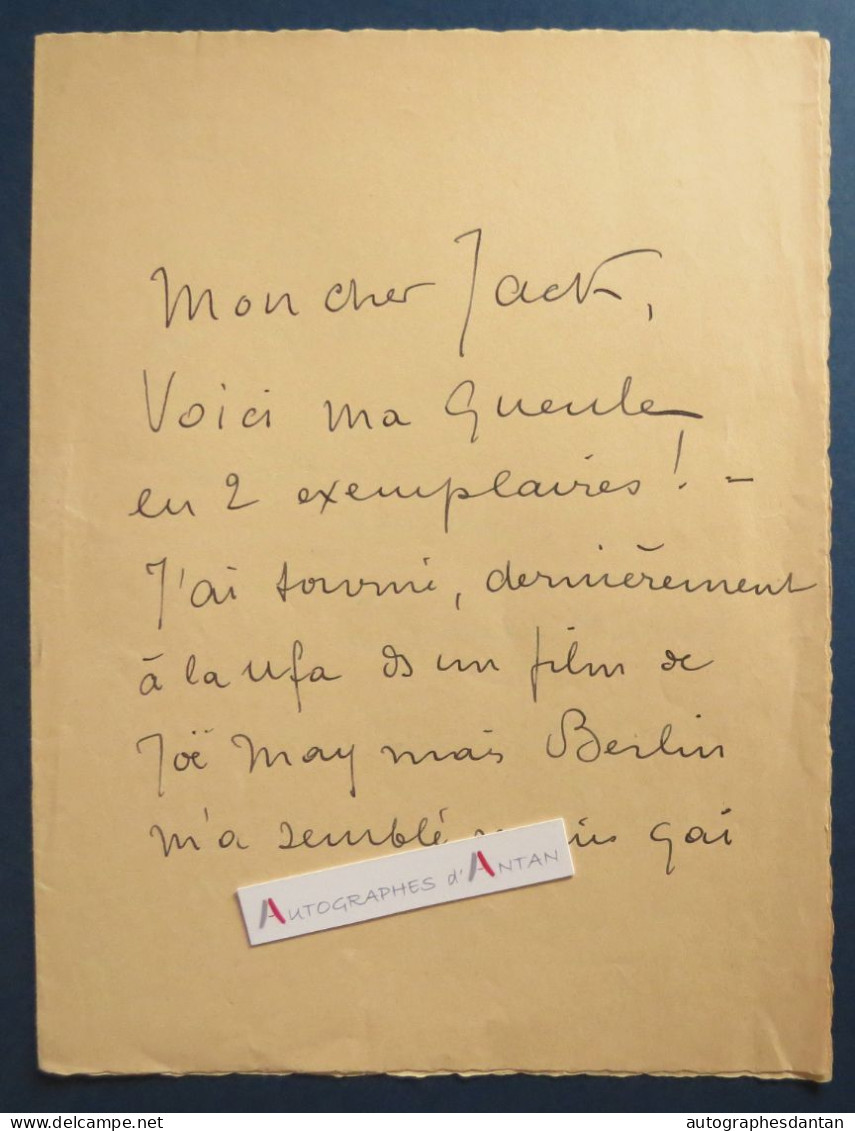 Mon cher Jack,
Voici ma gueule
en 2 exemplaires! -
J'ai tourné, dernièrement
à la Ufa ds un film de
Joë May mais Berlin
m'a semblé moins gai
AUTOGRAPHES d'ANTAN
www.delcampe.net
autographesdantan